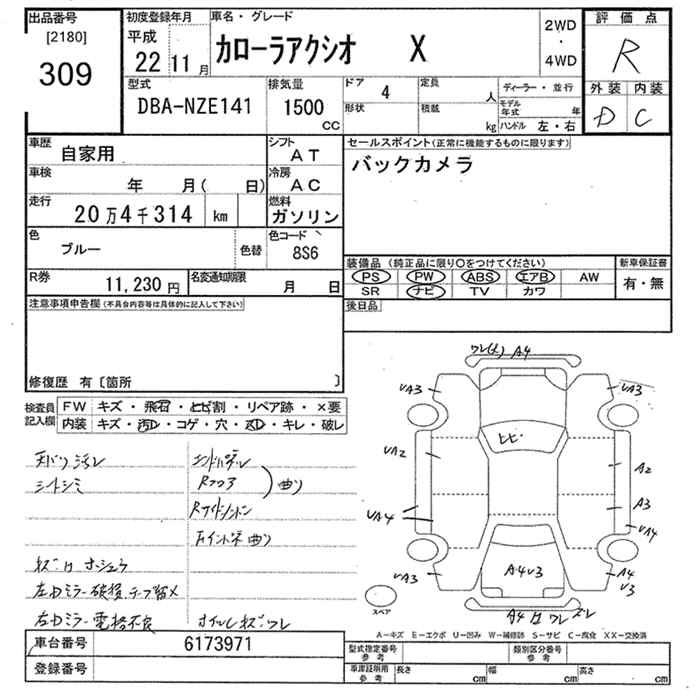 出品番号
[2180]
309
初度登録年月
平成
22 11月
車名・グレード
カローラアクシオ X
2WD
・
4WD
評価点
R
外装 内装
D C
型式
DBA-NZE141
排気量
1500
CC
ドア
4
形状
定員
人
積載
kg
ディーラー・並行
モデル年式 年
ハンドル 左・右
車歴
自家用
シフト
AT
車検
年 月( 日)
冷房
AC
走行
20万4千314 km
燃料
ガソリン
色
ブルー
色替
色コード
8S6
R券
11,230円
名変通知期限
月 日
セールスポイント(正常に機能するものに限ります)
バックカメラ
装備品(純正品に限り〇をつけてください)
新車保証書
PS PW ABS エアB AW
SR ナビ TV カワ
有・無
後日品
注意事項申告欄(不具合内容等は具体的に記入して下さい)
修復歴 有〔箇所 〕
検査員記入欄
FW キズ・飛石・ヒビ割・リペア跡・×要
内装 キズ・汚れ・コゲ・穴・スレ・キレ・破レ
天バリ汚レ
シートシミ
エンドパネル
Rフロア
曲り
左ドアミラー破損テープ留メ
右ドアミラー電格不良
A4
UA3
UA3
ヒビ
UA2
A2
UA4
A3
UA4
UA3
A4U3
A4
U3
A4
ワレ
ズレ
スペア
A-キズ E-エクボ U-凹み W-補修跡 S-サビ C-腐食 XX-交換済
車台番号
6173971
登録番号
型式指定番号
参考
類別区分番号
参考
車庫証明用
参考
長さ cm
幅 cm
高さ cm